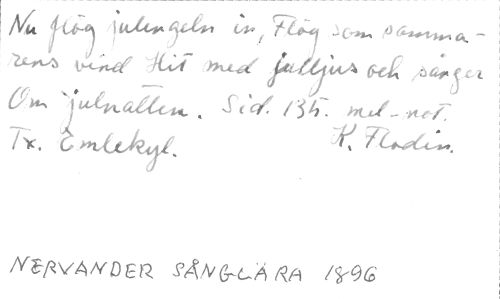 Nu flög julengeln in, Flög som somma-
rens vind Hit med julljus och sånger
Om julnatten. Sid. 135. mel-not.
Tx. Emlekyl. K. Flodin.
NERVANDER SÅNGLÄRA 1896